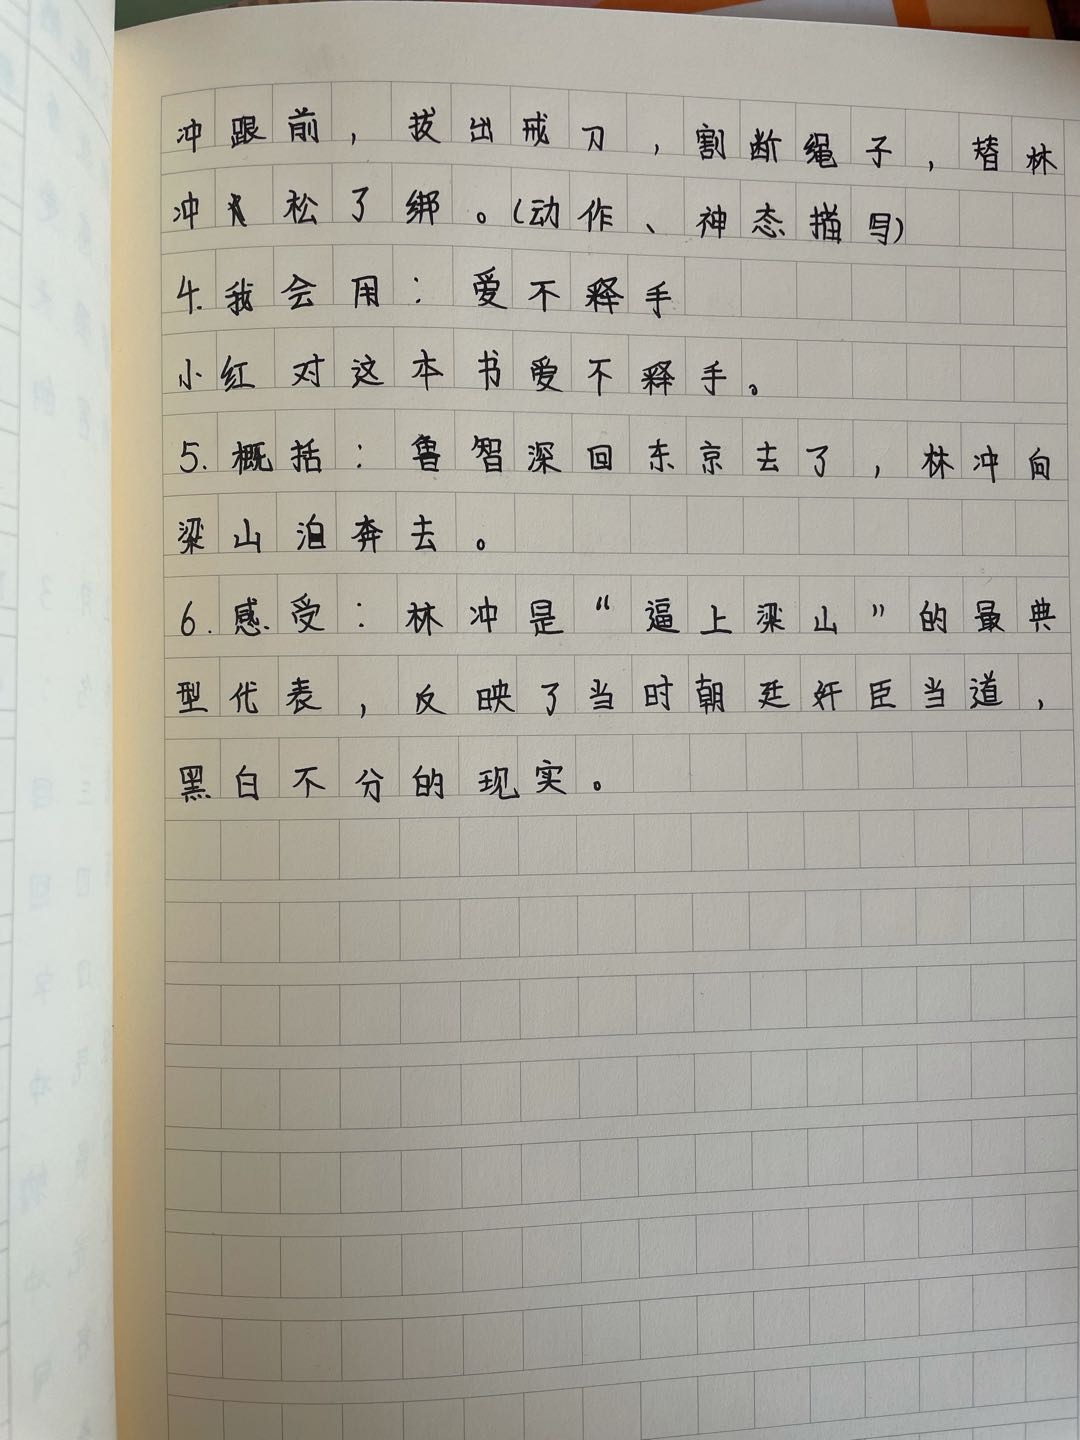 冲跟前，拔出戒刀，割断绳子，替林
冲松了绑。(动作、神态描写)
4.我会用：爱不释手
小红对这本书爱不释手。
5.概括：鲁智深回东京去了，林冲向
梁山泊奔去。
6.感受：林冲是“逼上梁山”的最典
型代表，反映了当时朝廷奸臣当道，
黑白不分的现实。